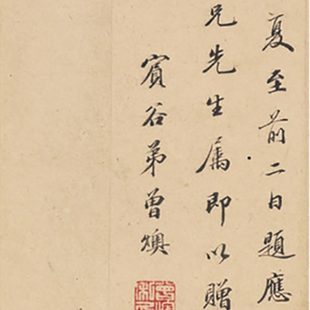 夏至前二日題應
兄先生屬即以贈
賓谷弟曾燠